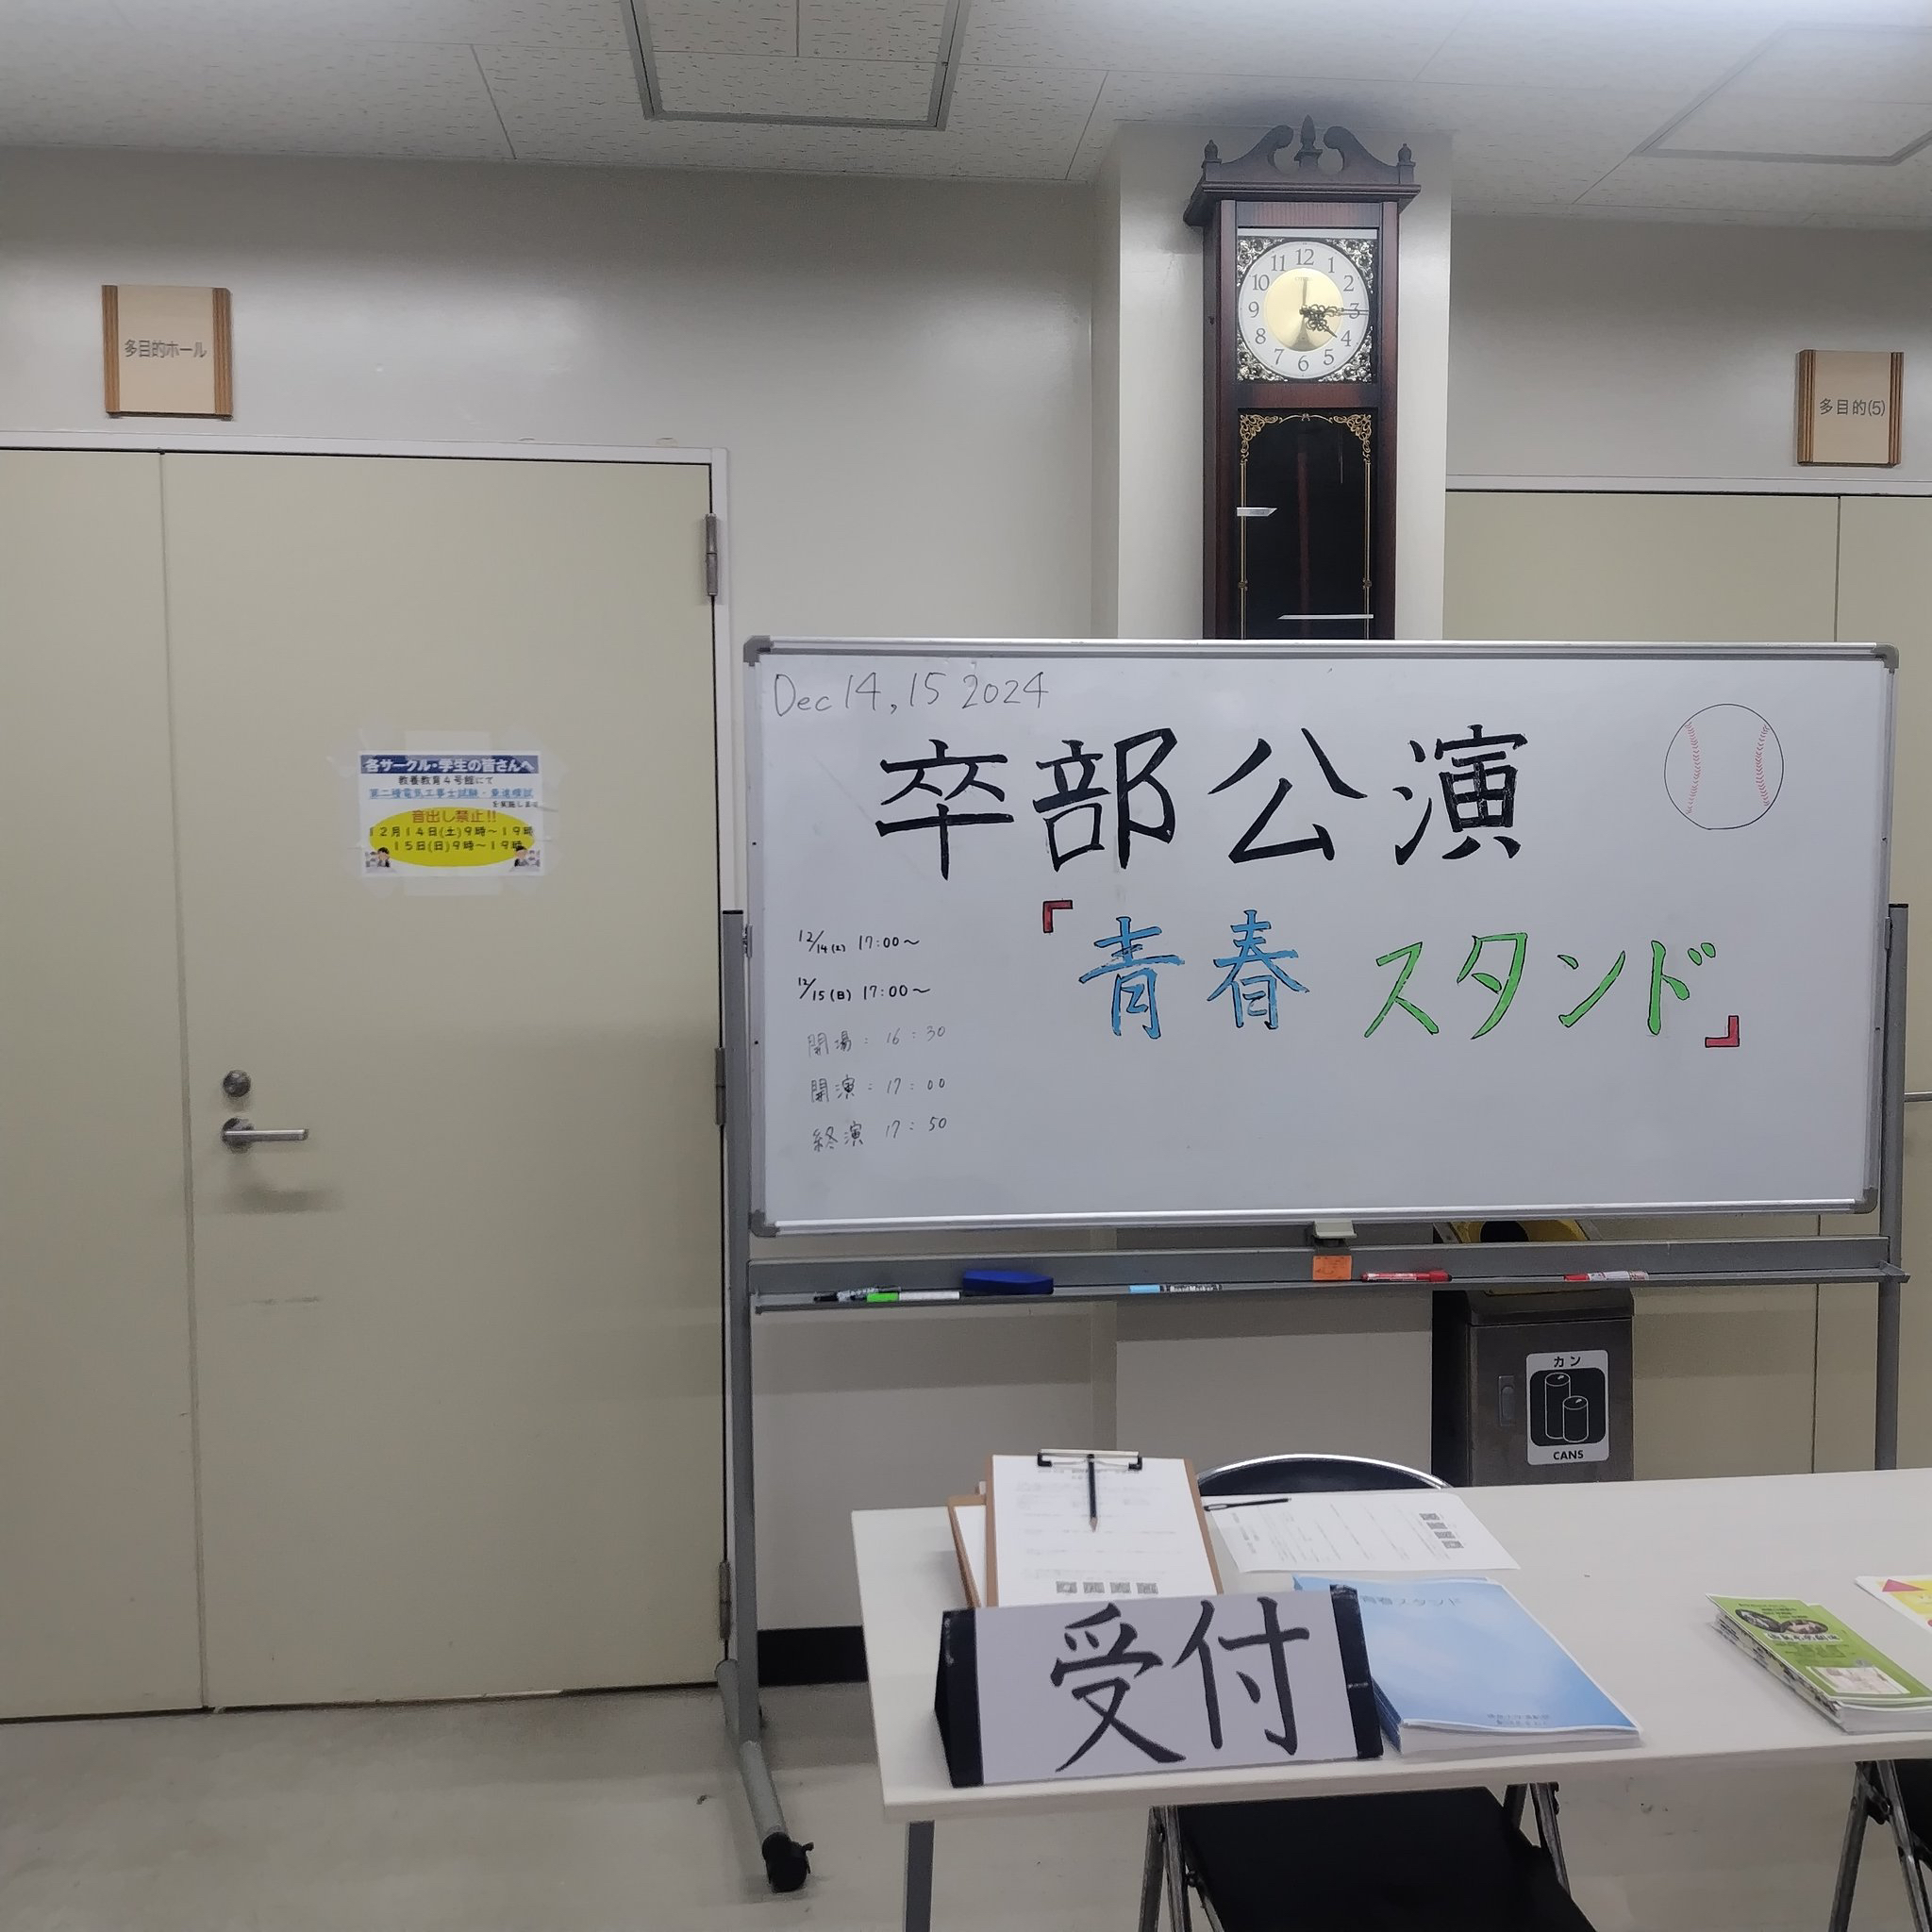 多目的ホール
12
1
2
3
4
5
6
7
8
9
10
11
多目的(5)
各サークル・学生の皆さんへ
教養教育4号館にて
第二種電気工事士試験・
を実施します
音出し禁止!!
12月14日(土)9時~19時
15日(日)9時~19時
Dec 14, 15 2024
卒部公演
『青春スタンド』
12/14(土) 17:00~
12/15(日) 17:00~
開場: 16:30
開演: 17:00
終演 17:50
カン
CANS
受付
青春スタンド